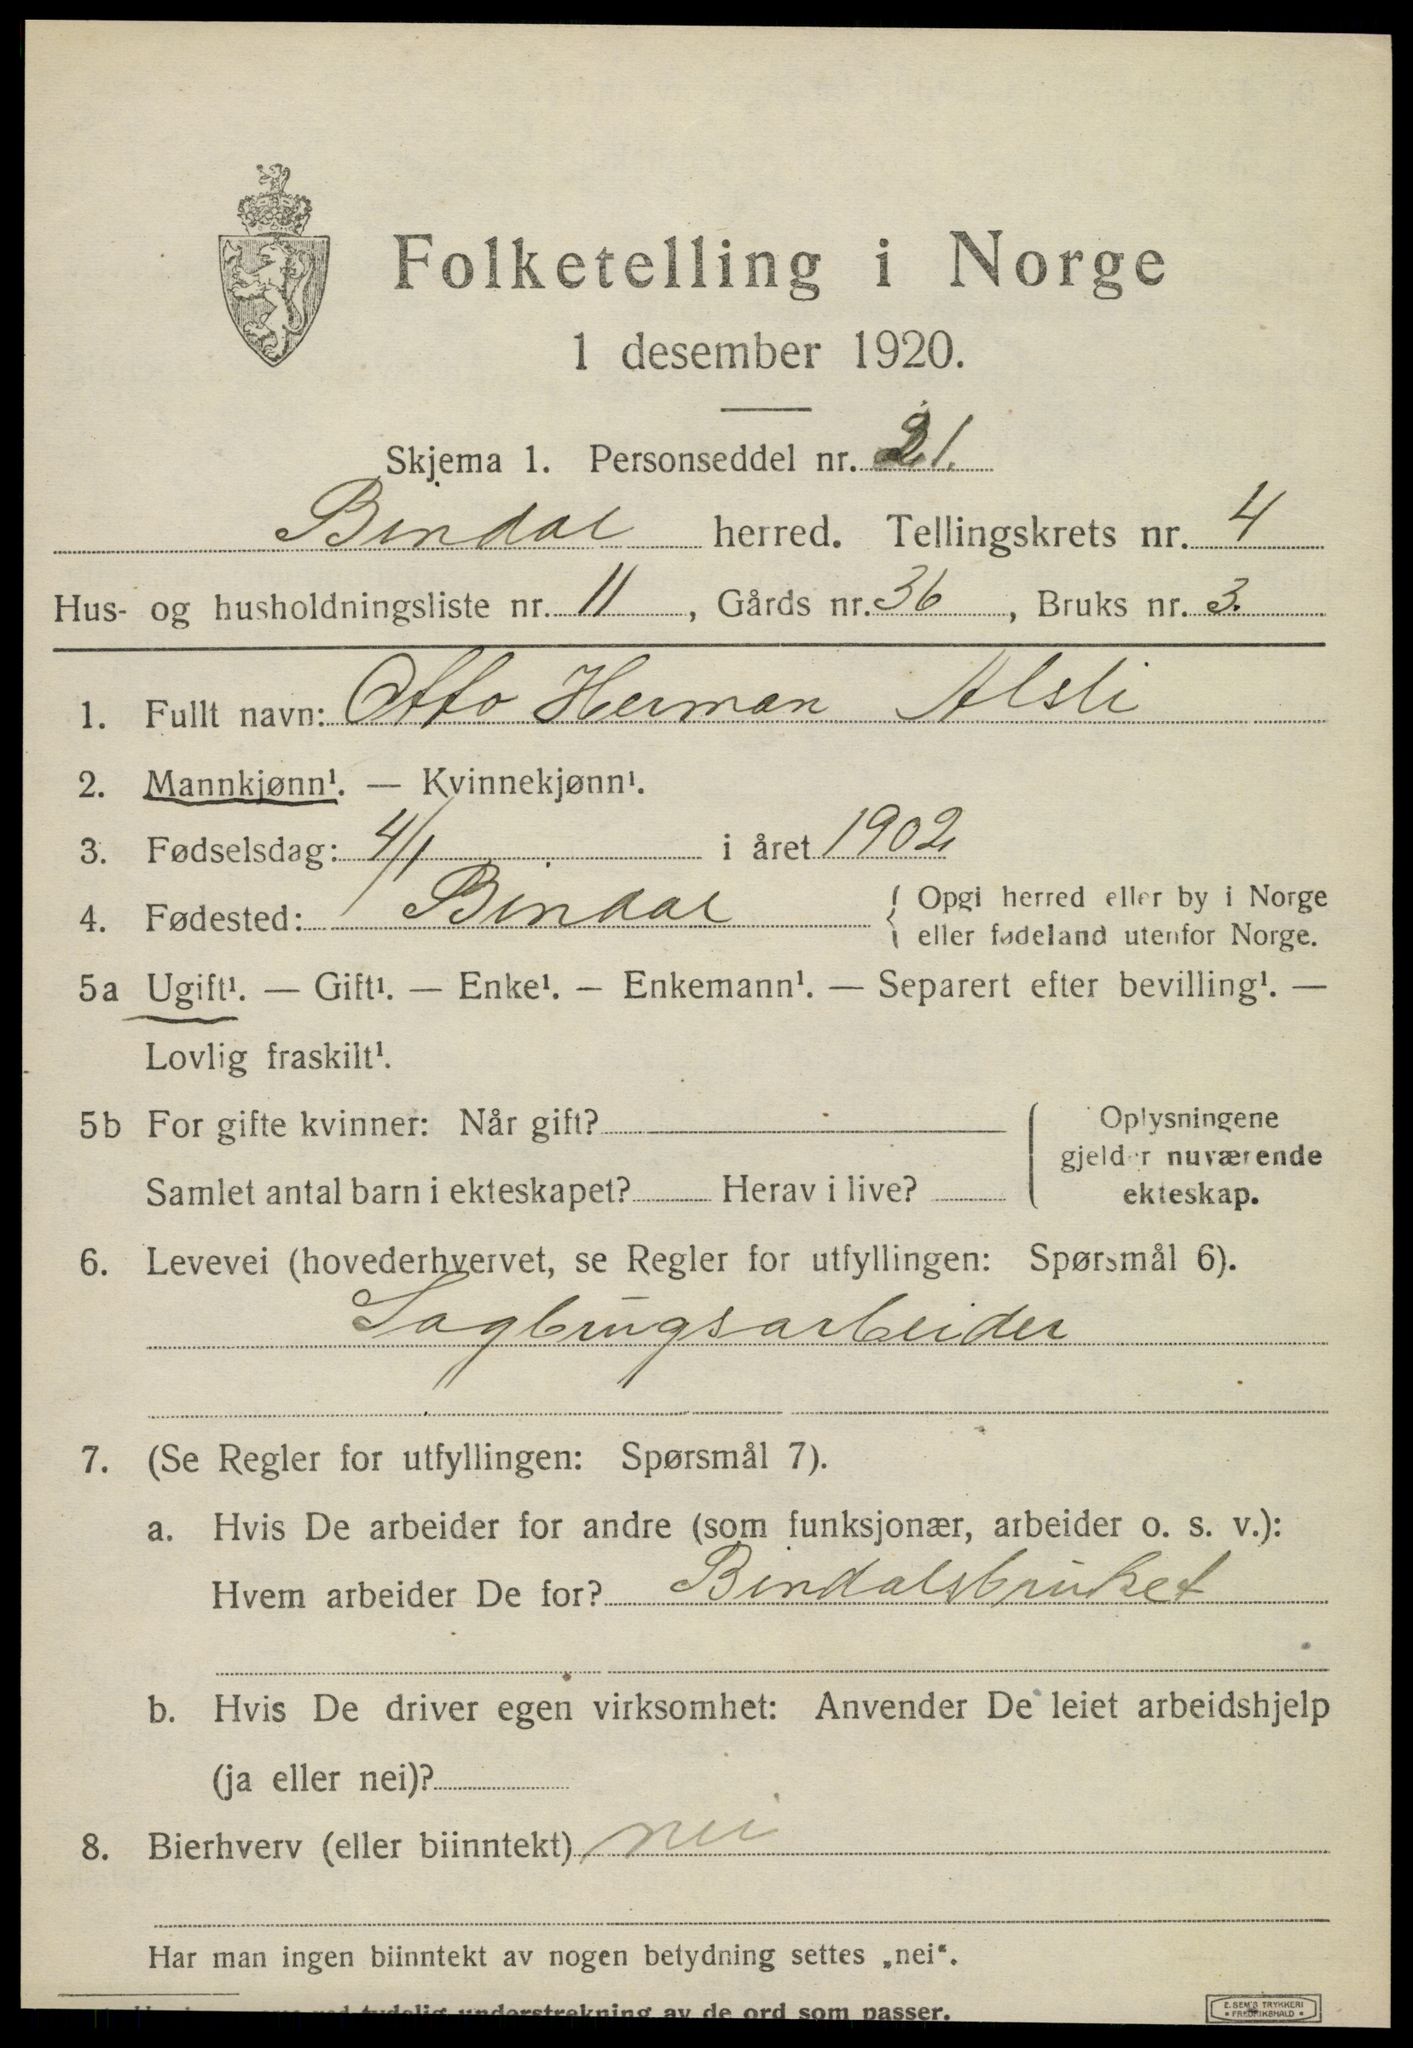 Folketelling i Norge
1 desember 1920.
Skjema 1. Personseddel nr. 21.
Bindal herred. Tellingskrets nr. 4
Hus- og husholdningsliste nr. 11, Gårds nr. 36, Bruks nr. 3.
1. Fullt navn: Otto Herman Alsli
2. Mannkjønn¹. — Kvinnekjønn¹.
3. Fødselsdag: 4/1 i året 1902
4. Fødested: Bindal { Opgi herred eller by i Norge
eller fødeland utenfor Norge.
5a Ugift¹. — Gift¹. — Enke¹. — Enkemann¹. — Separert efter bevilling¹. —
Lovlig fraskilt¹.
5b For gifte kvinner: Når gift?
Samlet antal barn i ekteskapet? Herav i live?
{ Oplysningene
gjelder nuværende
ekteskap.
6. Levevei (hovederhvervet, se Regler for utfyllingen: Spørsmål 6).
Sagbrugsarbeider
7. (Se Regler for utfyllingen: Spørsmål 7).
a. Hvis De arbeider for andre (som funksjonær, arbeider o. s. v.):
Hvem arbeider De for? Bindalsbruket
b. Hvis De driver egen virksomhet: Anvender De leiet arbeidshjelp
(ja eller nei)?
8. Bierhverv (eller biinntekt) nei
Har man ingen biinntekt av nogen betydning settes „nei“.
ved tydelig understrekning av de ord som passer.
E. SEM'S TRYKKERI
FREDRIKSHALD